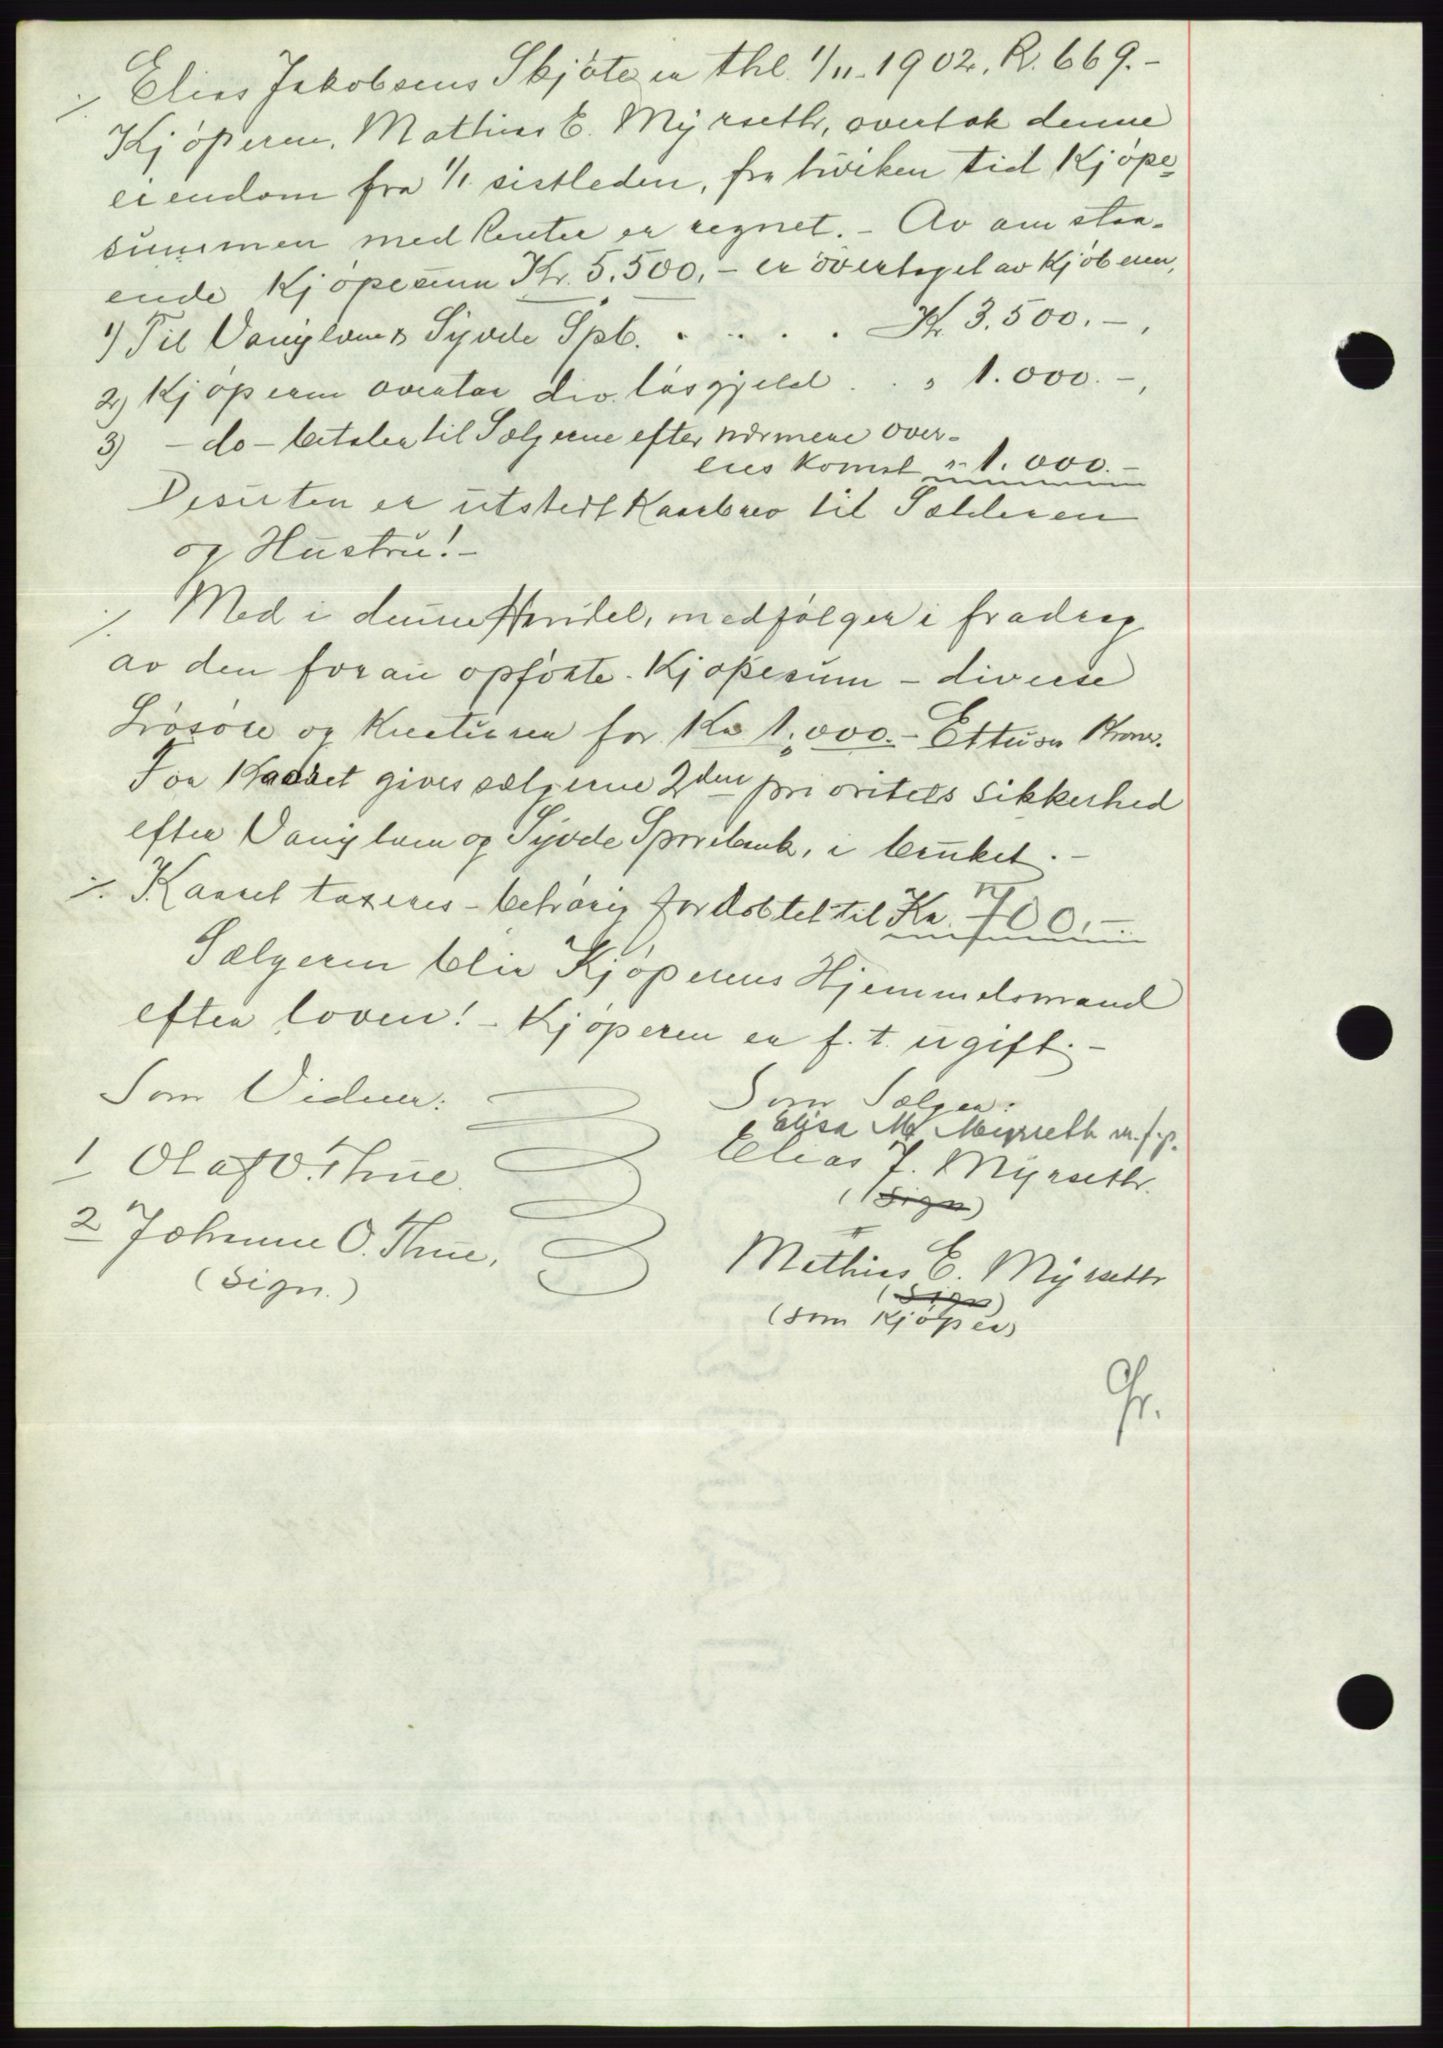 ÷ Elias Jakobsens Skjöte er thl. 1/11-1902. R. 669.-
Kjöperen, Mathias E. Myrseth, overtok denne
eiendom fra 1/1. sistleden, fra hviken tid Kjöpe-
summen med Renter er regnet. - Av om staa-
ende Kjöpesum Kr. 5.500,- er overtaget av Kjöberen,
1) Til Vanylven & Syvde Spb. . . . . Kr. 3.500.-,
2) Kjöperen overtar div. lösgjeld . . " 1.000.-,
3) -do- betaler til Sælgerne efter nærmere over-
ens komst " 1.000.-
Desuten er utstedt Kaarbrev til Sælderen
og Hustru!-
÷ Med i denne Handel, medfölger i fradrag
av den foran opförte Kjöpesum - diverse
Lösöre og Kreaturer for Kr 1.000.- Ettusen Kroner.
For Kaaret gives sælgerne 2den prioritets sikkerhed
efter Vanylven og Syvde Sparebank, i bruket.-
÷ Kaaret taxeres - behörig fordobtet til Kr. 700,-
Sælgeren blir Kjöperens Hjemmelsmand
efter loven! - Kjöperen er f. t. ugift.-
Som Vidner:
Som Sælger:
Elisa M Myrseth m.f.p.
1 Olaf O. Thue.
Elias J. Myrseth.
(Sign)
2 Johanne O. Thue,
(Sign.)
Mathias E. Myrseth
(Sign)
(som Kjöper)
Gr.